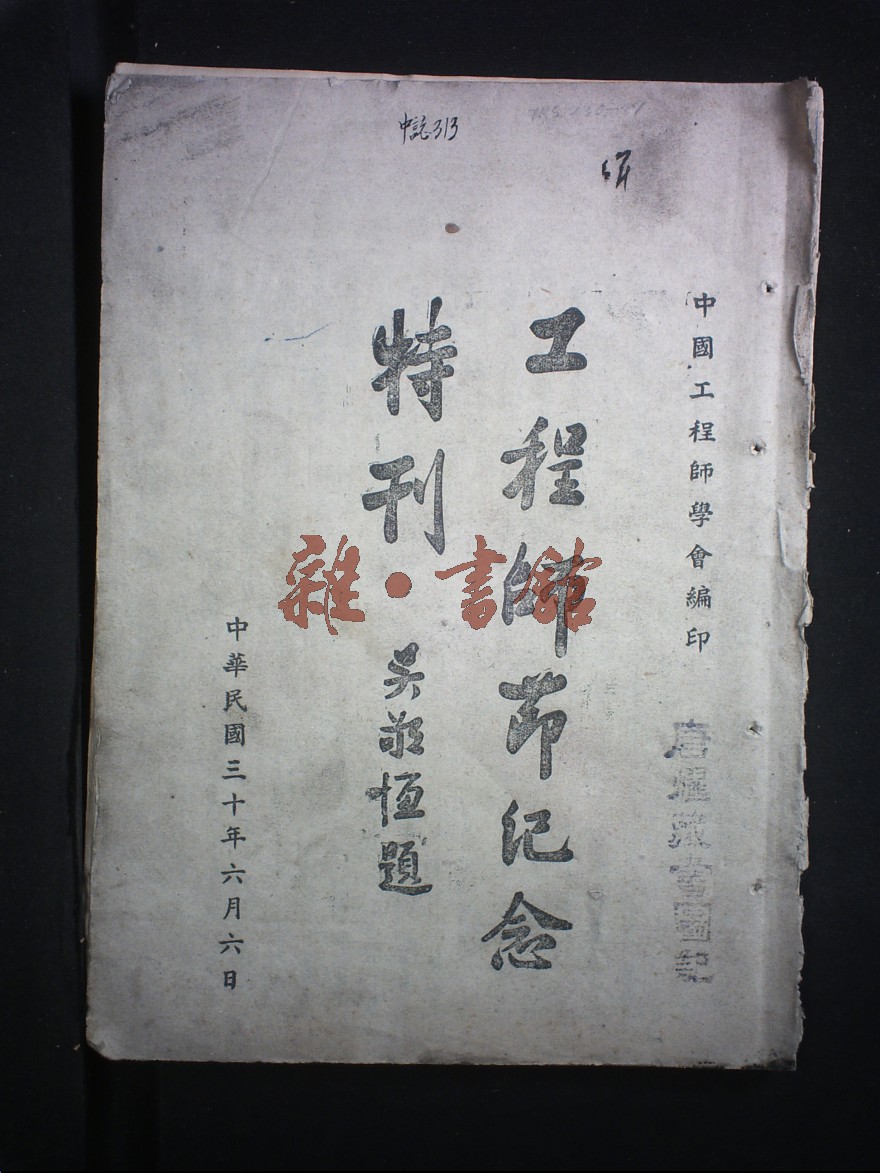 中誌313
中國工程師學會編印
工程師節紀念
特刊
吳敬恆題
中華民國三十年六月六日
唐燿藏書圖記
雜·書館